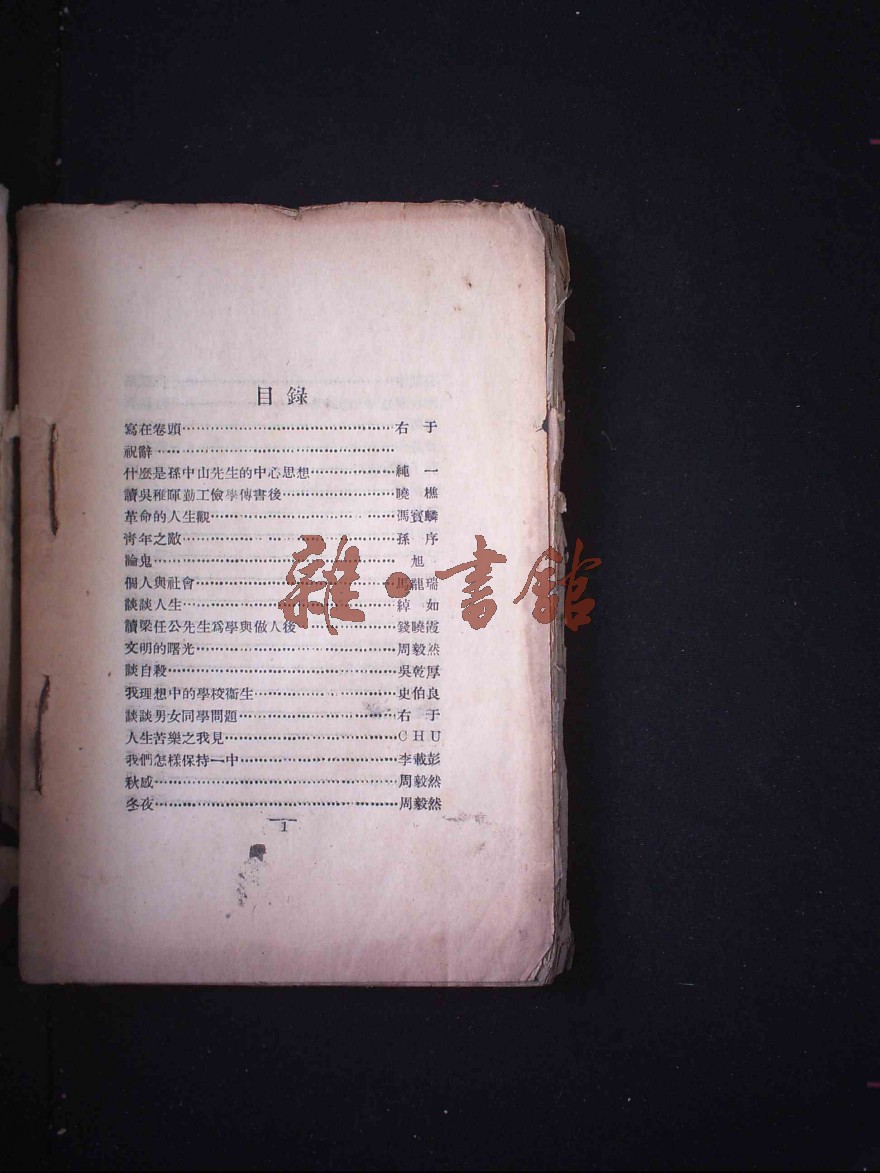 目錄
寫在卷頭……………………………………右 于
祝辭……………………………………
什麼是孫中山先生的中心思想……………純 一
讀吳稚暉勤工儉學傳書後…………………曉 樵
革命的人生觀………………………………馮寶麟
靑年之敵……………………………………孫 序
論鬼…………………………………………旭
個人與社會…………………………………馬龍瑞
談談人生……………………………………綽 如
讀梁任公先生爲學與做人後………………錢曉霞
文明的曙光…………………………………周毅然
談自殺………………………………………吳乾厚
我理想中的學校衞生………………………史伯良
談談男女同學問題…………………………右 于
人生苦樂之我見……………………………CHU
我們怎樣保持一中…………………………李載彭
秋感…………………………………………周毅然
冬夜…………………………………………周毅然
1
雜·書館